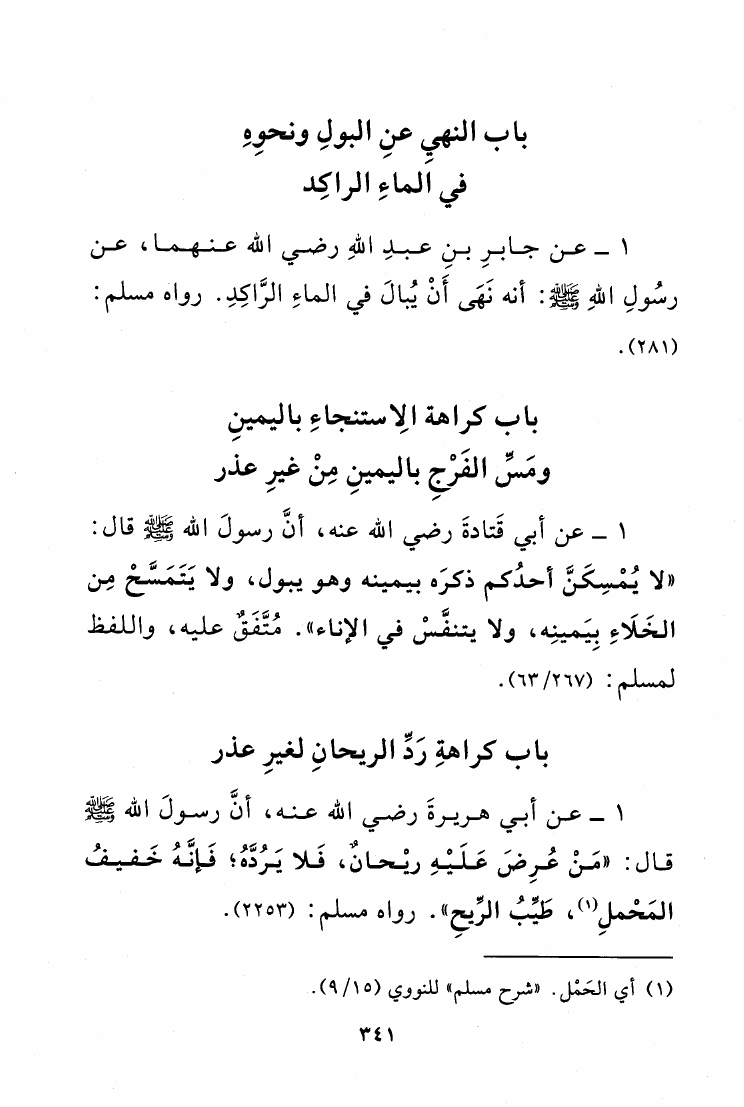 باب النهيِ عنِ البولِ ونحوِهِ
في الماءِ الراكِد
١ ـ عن جابرِ بنِ عبدِ اللهِ رضي الله عنهما، عن
رسُولِ اللهِ ﷺ: أنه نَهَى أَنْ يُبالَ في الماءِ الرَّاكِدِ. رواه مسلم:
(٢٨١).
باب كراهة الِاستنجاءِ باليمينِ
ومَسِّ الفَرْجِ باليمينِ مِنْ غيرِ عذر
١ ـ عن أبي قَتادةَ رضي الله عنه، أنَّ رسولَ الله ﷺ قال:
«لا يُمْسِكَنَّ أحدُكم ذكرَه بيمينه وهو يبول، ولا يَتَمَسَّحْ مِن
الخَلَاءِ بِيَمينِه، ولا يتنفَّسْ في الإناء». مُتَّفَقٌ عليه، واللفظ
لمسلم: (٦٣/٢٦٧).
باب كراهةِ رَدِّ الريحانِ لغيرِ عذر
١ ـ عن أبي هريرةَ رضي الله عنه، أنَّ رسولَ الله ﷺ
قال: «مَنْ عُرِضَ عَلَيْهِ ريْحانٌ، فَلا يَرُدَّهُ؛ فَإنَّهُ خَفيفُ
المَحْملِ(١)، طَيِّبُ الرِّيحِ». رواه مسلم: (٢٢٥٣).
(١) أي الحَمْل. «شرح مسلم» للنووي (٩/١٥).
٣٤١